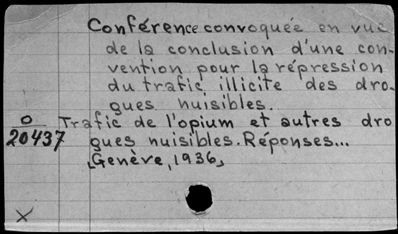 Conférence convoquée en vue
de la conclusion d'une con-
vention pour la répression
du trafic illicite des dro-
gues nuisibles.
O
20437
Trafic de l'opium et autres dro
gues nuisibles. Réponses...
[Genève, 1936]
X